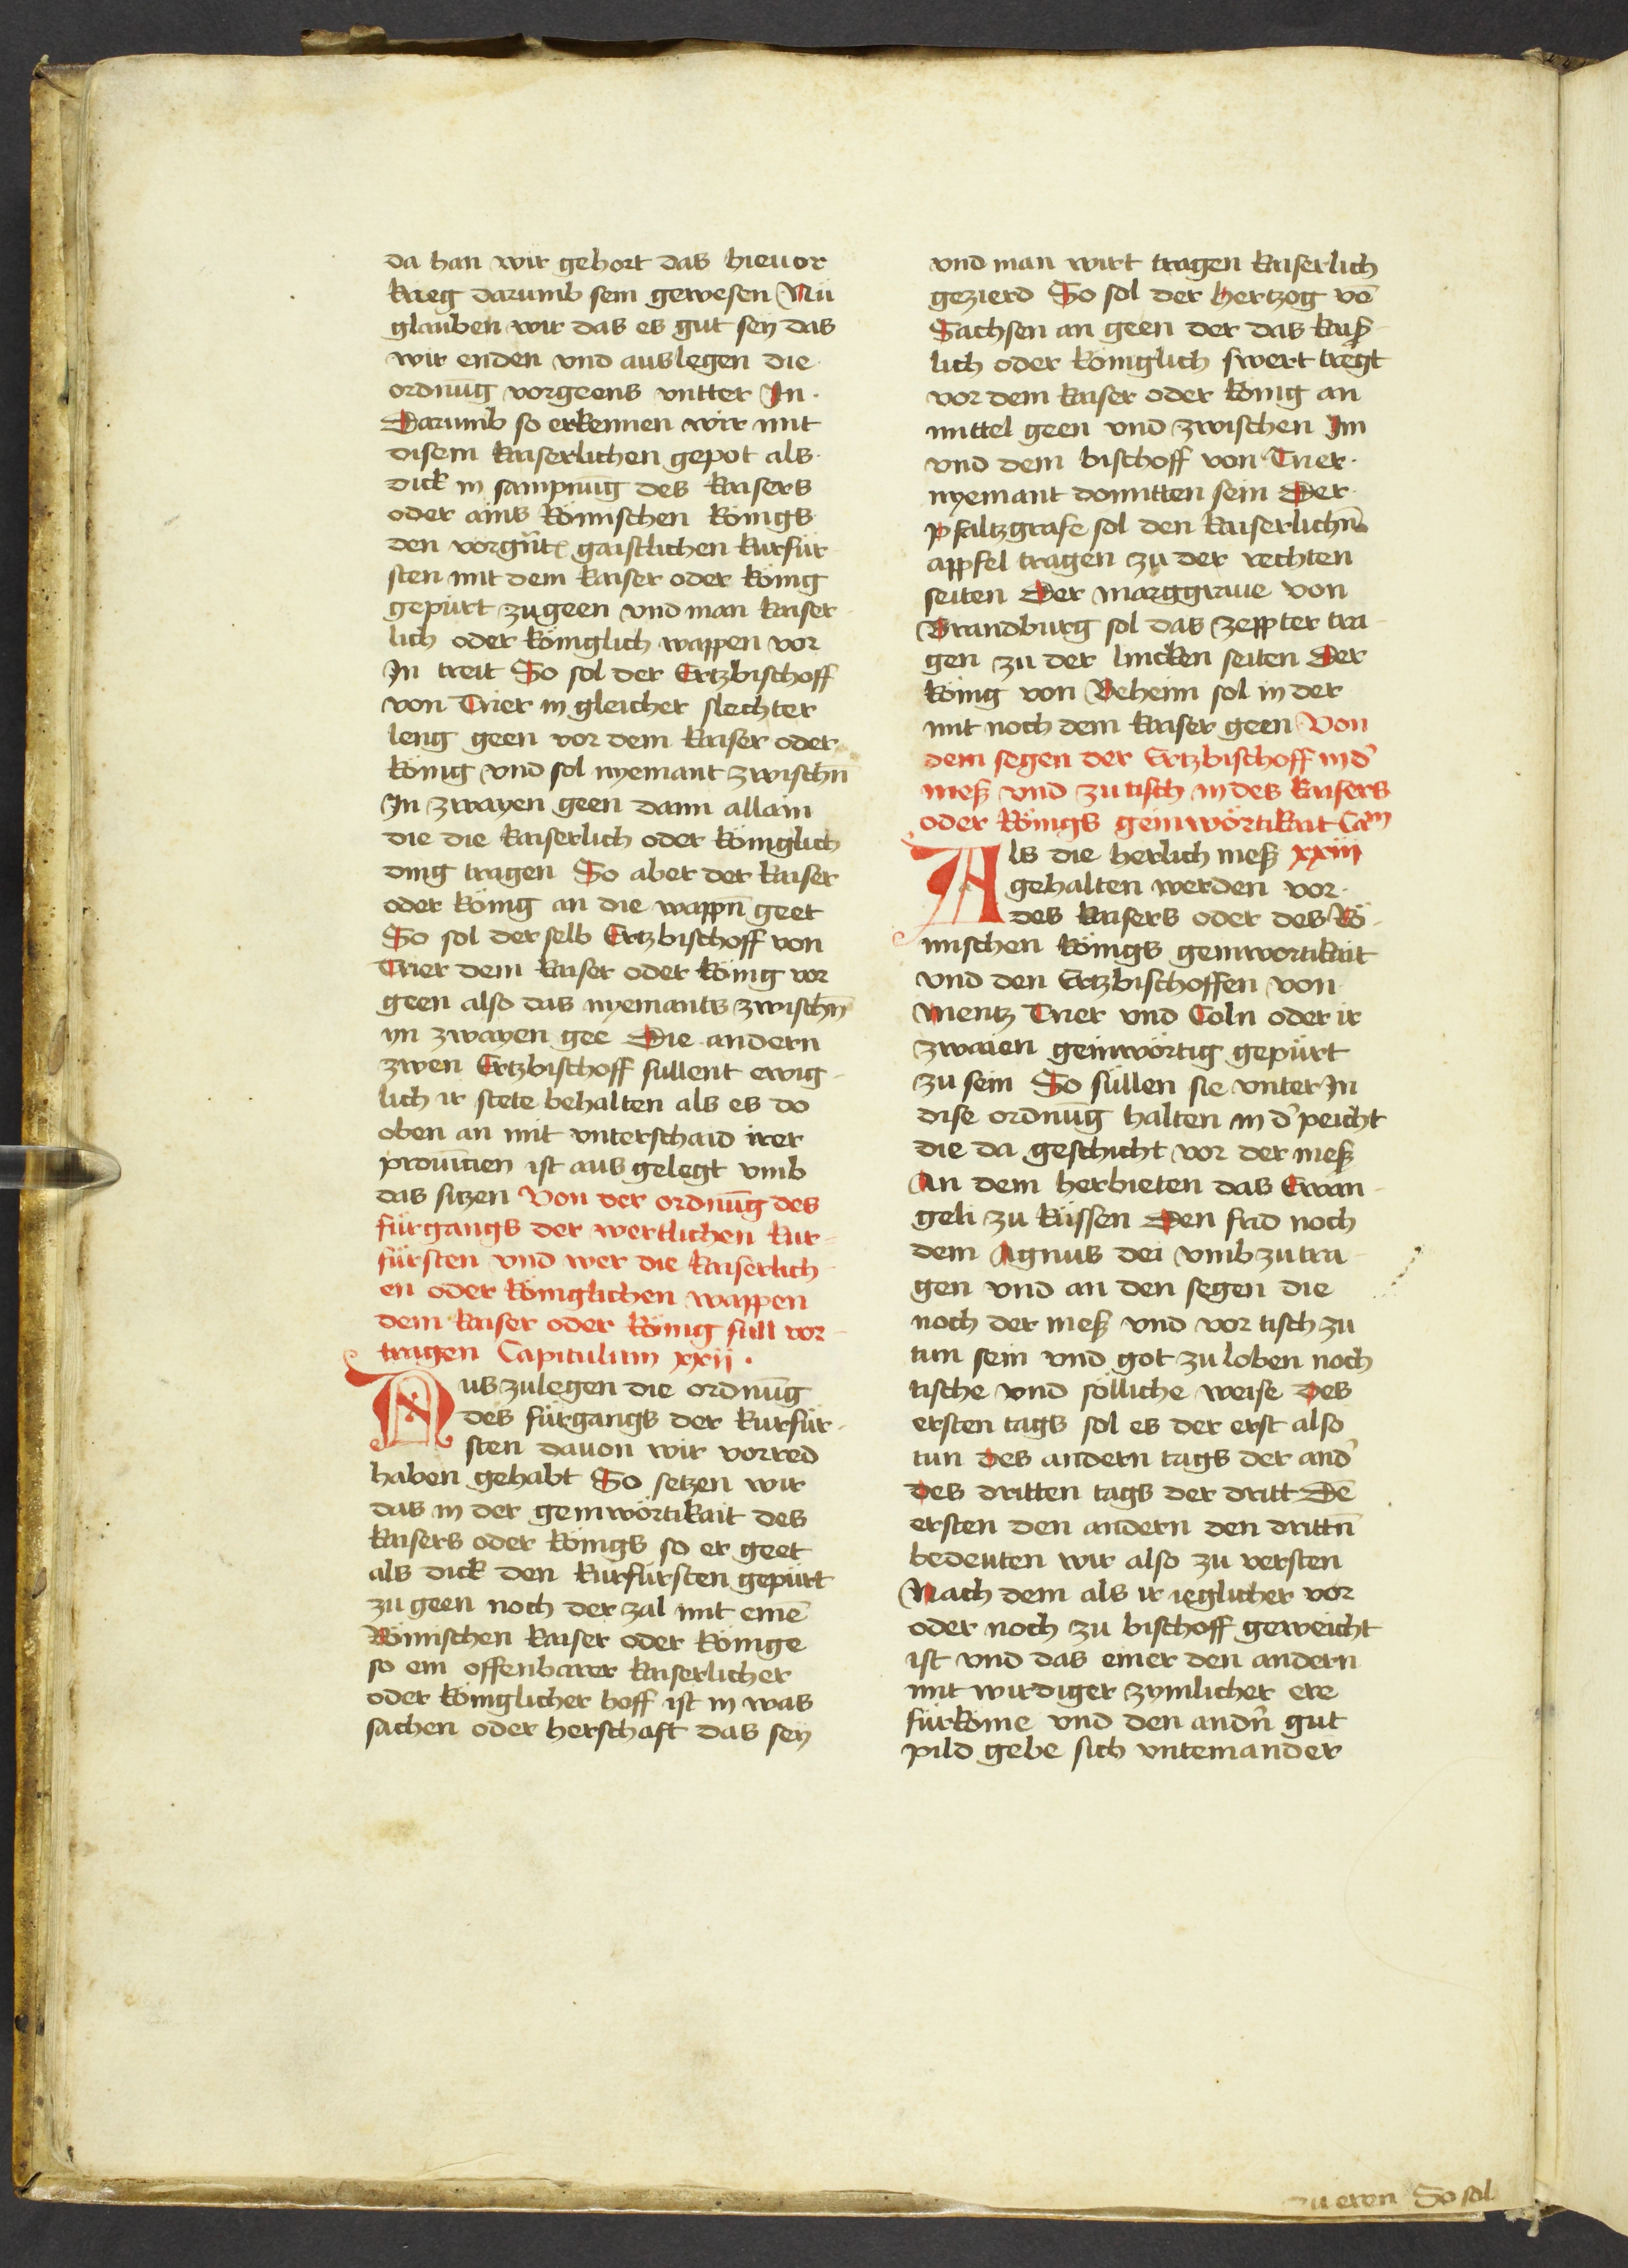 da han wir gehort das hieuor
krieg darumb sein gewesen Nu
glauben wir das es gut sey das
wir enden vnd auslegen die
ordnūg vorgeens vntter In
Darumb so erkennen wir mit
disem kaiserlichen gepot als
dick in sampnūg des kaisers
oder ains Römischen königs
den vorgn̄t gaistlichen kurfür
sten mit dem kaiser oder könig
gepürt zugeen vnd man kaiser
lich oder königlich wappen vor
In treit So sol der Ertzbischoff
von Trier in gleicher slechter
leng geen vor dem kaiser oder
könig vnd sol nyemant zwischn̄
In zwayen geen dann allain
die die kaiserlich oder königlich
ding tragen So aber der kaiser
oder könig an die wappn̄ geet
So sol derselb Ertzbischoff von
Trier dem kaiser oder könig vor
geen also das nyemants zwischn̄
yn zwayen gee Die andern
zwen Ertzbischoff sullent ewig
lich ir stete behalten als es do
oben an mit vnterschaid irer
prouīcien ist aus gelegt vmb
das sitzen Von der ordnūg des
fürgangs der werltlichen kur-
fürsten vnd wer die kaiserlich
en oder königlichen wappen
dem kaiser oder könig süll vor-
tragen Capitulum xxii ·
Auszulegen die ordnūg
des fürgangs der kurfür-
sten dauon wir vorred
haben gehabt So setzen wir
das in der geinwörtikait des
kaisers oder königs so er geet
als dick den kurfürsten gepürt
zu geen noch der zal mit einē
Römischen kaiser oder könige
so ein offenbarer kaiserlicher
oder königlicher hoff ist in was
sachen oder herschaft das sey
vnd man wirt tragen kaiserlich
gezierd So sol der hertzog vō
Sachsen an geen der das kais̉
lich oder königlich swert tregt
vor dem kaiser oder könig an
mittel geen vnd zwischen Im
vnd dem bischoff von Trier
nyemant domitten sein Der
pfaltzgrafe sol den kaiserlichn̄
appfel tragen zu der rechten
seiten Der marggraue von
Brandburg sol das zeppter tra-
gen zu der lincken seiten Der
könig von Beheim sol in der
mit noch dem kaiser geen Von
dem segen der Ertzbischoff in d̉
meß vnd zu tisch in des kaisers
oder königs geinwörtikait Cam
Als die herlich meß xxiii
gehalten werden vor
des kaisers oder des Rö-
mischen königs geinwortikait
vnd den Ertzbischoffen von
Mentz Trier vnd Coln oder ir
zwaien geinwörtig gepürt
zu sein So süllen sie vnter In
dise ordnūg halten in d̉ peicht
die da geschicht vor der meß
An dem herbieten das Ewan-
geli zu küssen Den frid noch
dem Agnus dei vmb zu tra-
gen vnd an den segen die
noch der meß vnd vor tisch zu
tun sein vnd got zu loben noch
tische vnd sölliche weise Des
ersten tags sol es der erst also
tun Des andern tags der and̉
Des dritten tags der dritt Dē
ersten den andern den drittn̄
bedeuten wir also zu versten
Nach dem als ir ieglicher vor
oder noch zu bischoff geweicht
ist vnd das einer den andern
mit wirdiger zymlicher ere
fürkome vnd den andn̄ gut
pild gebe sich vntereinander
zu eren So sol